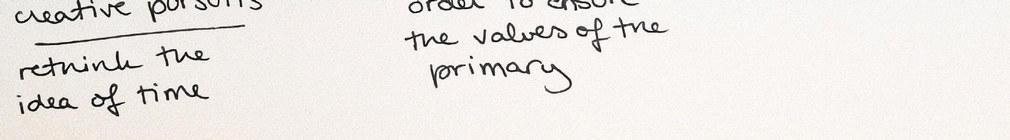 creative pursuits
rethink the
idea of time
order to ensure
the values of the
primary